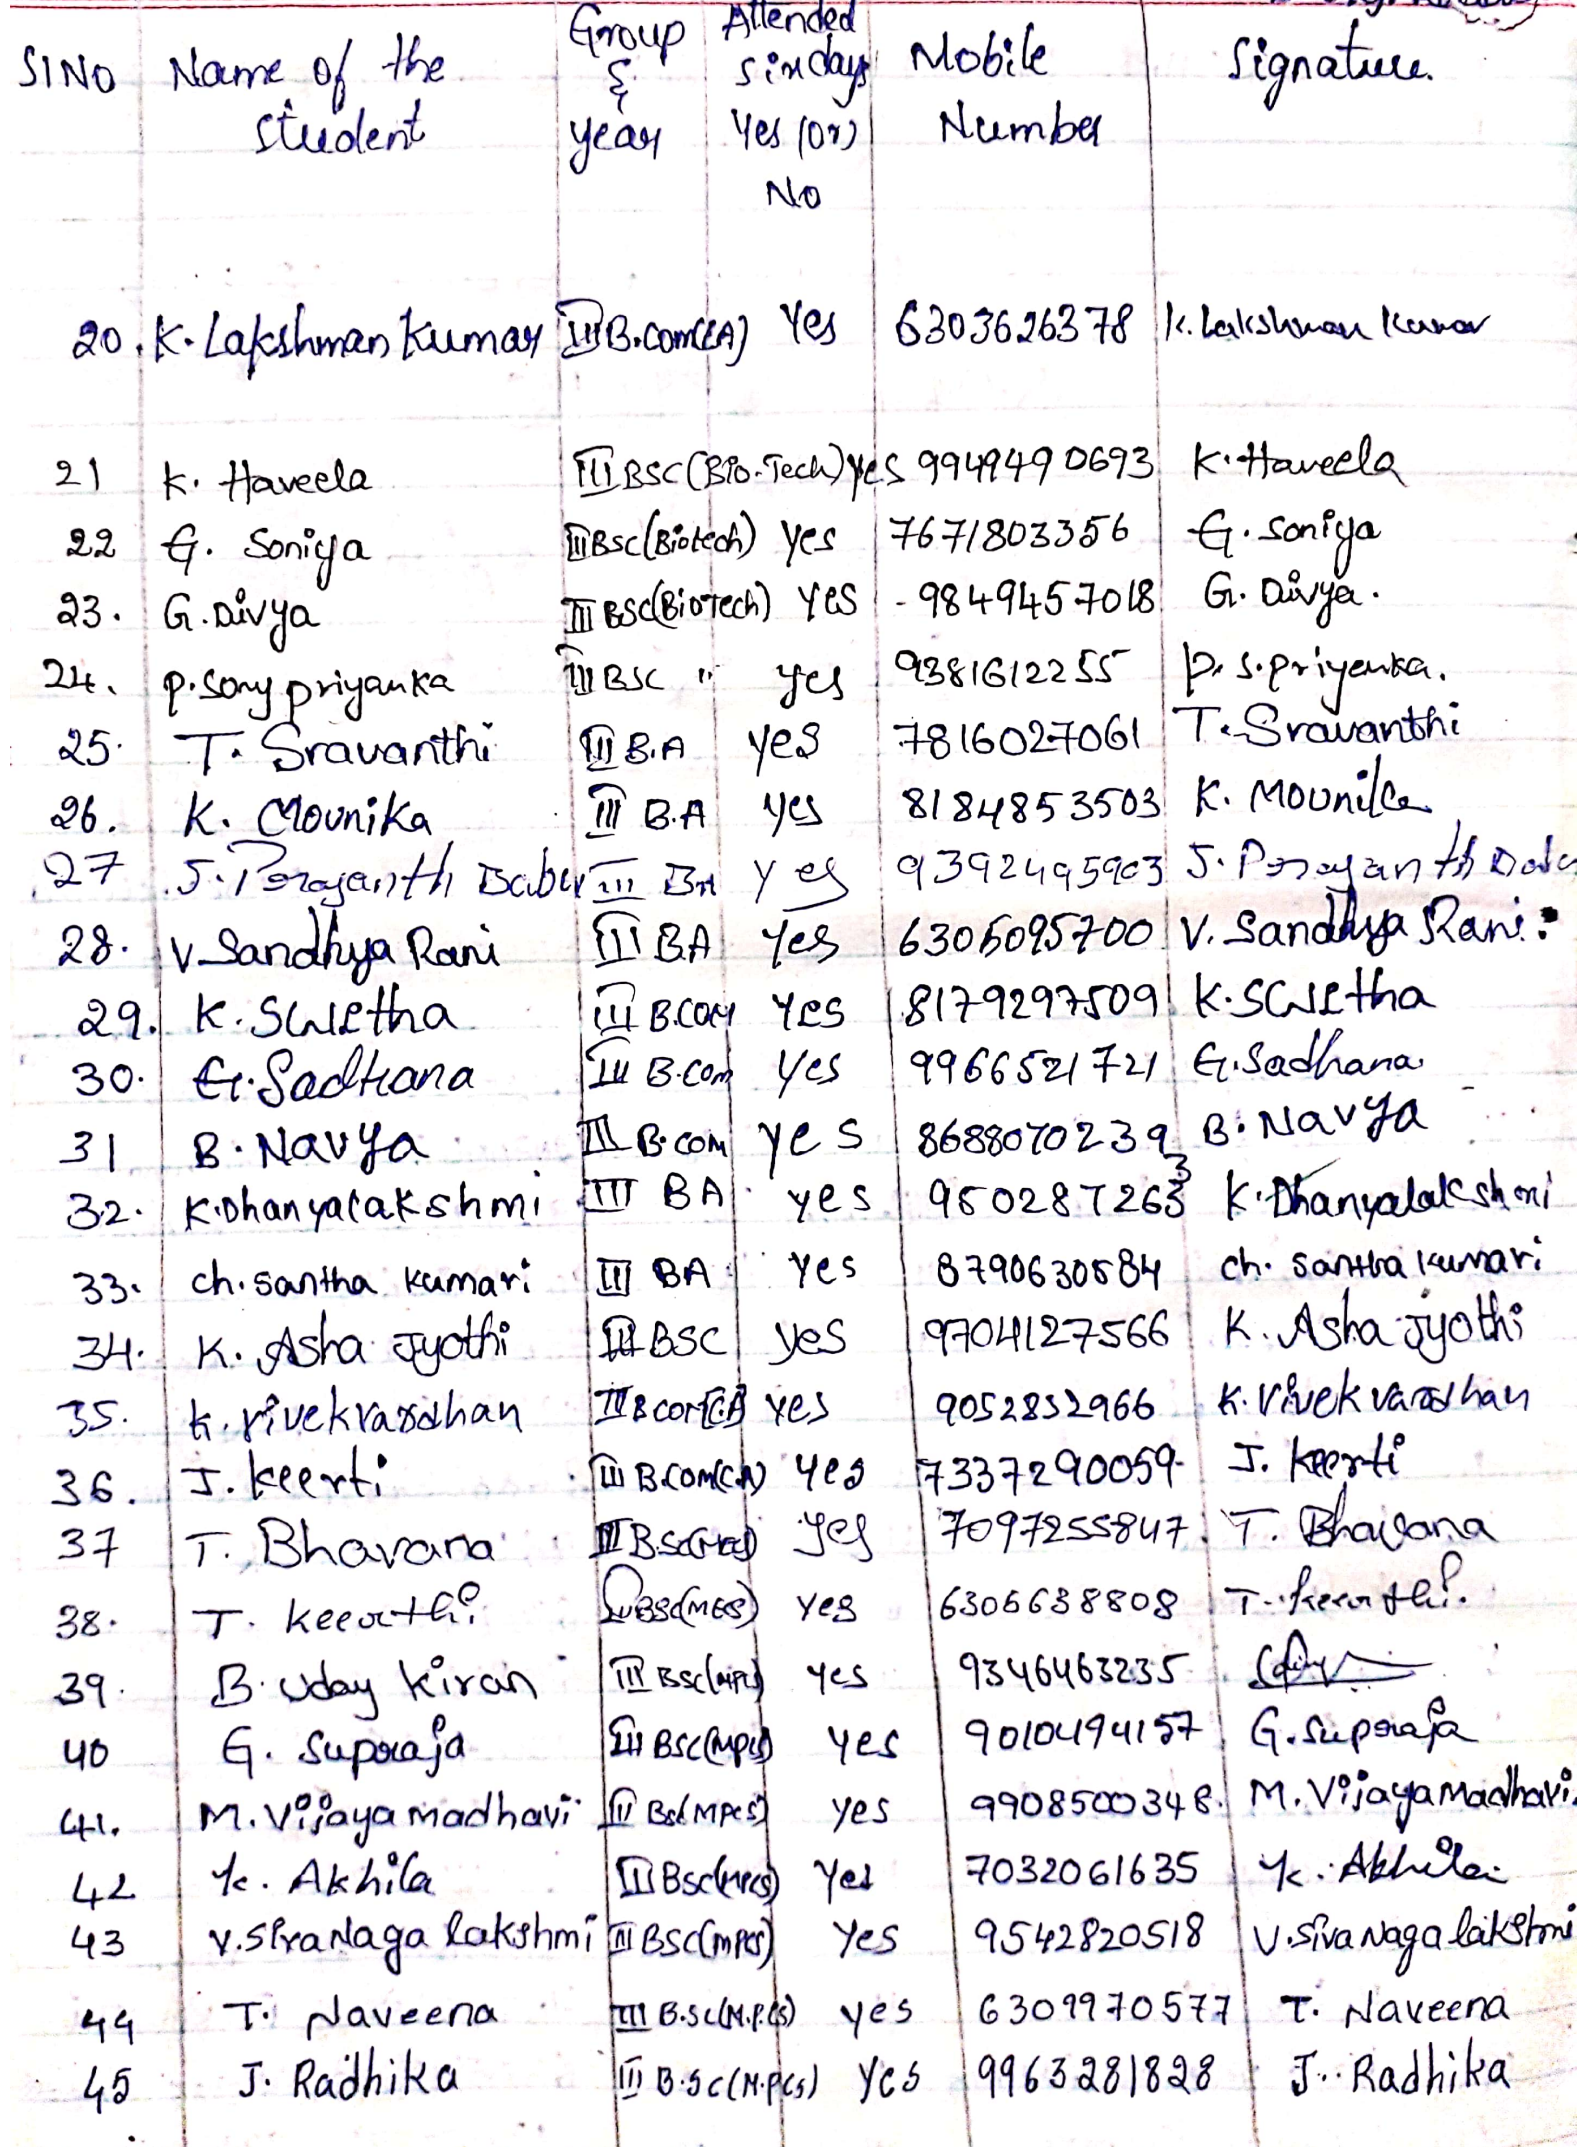 SlNo Name of the student Group & year Attended six days Yes (or) No Mobile Number Signature.
20. K. Lakshman Kumar III B.Com(CA) Yes 6303626378 K. Lakshman Kumar
21 K. Haveela III BSC (Bio-Tech) yes 9949490693 K. Haveela
22 G. Soniya III BSC (Biotech) yes 7671803356 G. Soniya
23. G. Divya III BSC (BioTech) Yes - 9849457018 G. Divya.
24. P. Sony priyanka III BSC " yes 9381612255 P. S. priyanka.
25. T. Sravanthi III B.A yes 7816027061 T. Sravanthi
26. K. Mounika III B.A yes 8184853503 K. Mounika
27 J. Babu III BA yes 9392495903 J.
28. V. Sandhya Rani III BA Yes 6305095700 V. Sandhya Rani.
29. K. Swetha III B.COM Yes 8179297509 K. Swetha
30. G. Sadhana III B.Com Yes 9966521721 G. Sadhana
31 B. Navya III B.com yes 8688070239 B. Navya
32. K. Dhanyalakshmi III BA yes 9502872633 K. Dhanyalakshmi
33. ch. santha kumari III BA Yes 8790630584 ch. santha kumari
34. K. Asha Jyothi III BSC yes 9704127566 K. Asha Jyothi
35. K. Vivekvardhan III BCOM[CA] Yes 9052832966 K. Vivek vardhan
36. J. Keerti III B.COM(CA) Yes 7337290059 J. Keerti
37 T. Bhavana III B.Sc(MES) Yes 7097255847. T. Bhavana
38. T. Keerthi III BSC(MES) Yes 6305638808 T. Keerthi.
39. B. Uday Kiran III BSC(MPCS) Yes 9346463235
40 G. Supraja III BSC(MPCS) Yes 9010494157 G. Supraja
41. M. Vijaya madhavi III BSC(MPCS) yes 9908500348. M. Vijaya Madhavi.
42 K. Akhila III BSC(MPCS) Yes 7032061635 K. Akhila
43 V. Siva Naga lakshmi III BSC(MPCS) Yes 9542820518 V. Siva Naga lakshmi
44 T. Naveena III B.SC(M.P.CS) yes 6309970577 T. Naveena
45 J. Radhika III B.SC(M.P.CS) Yes 9963281828 J. Radhika